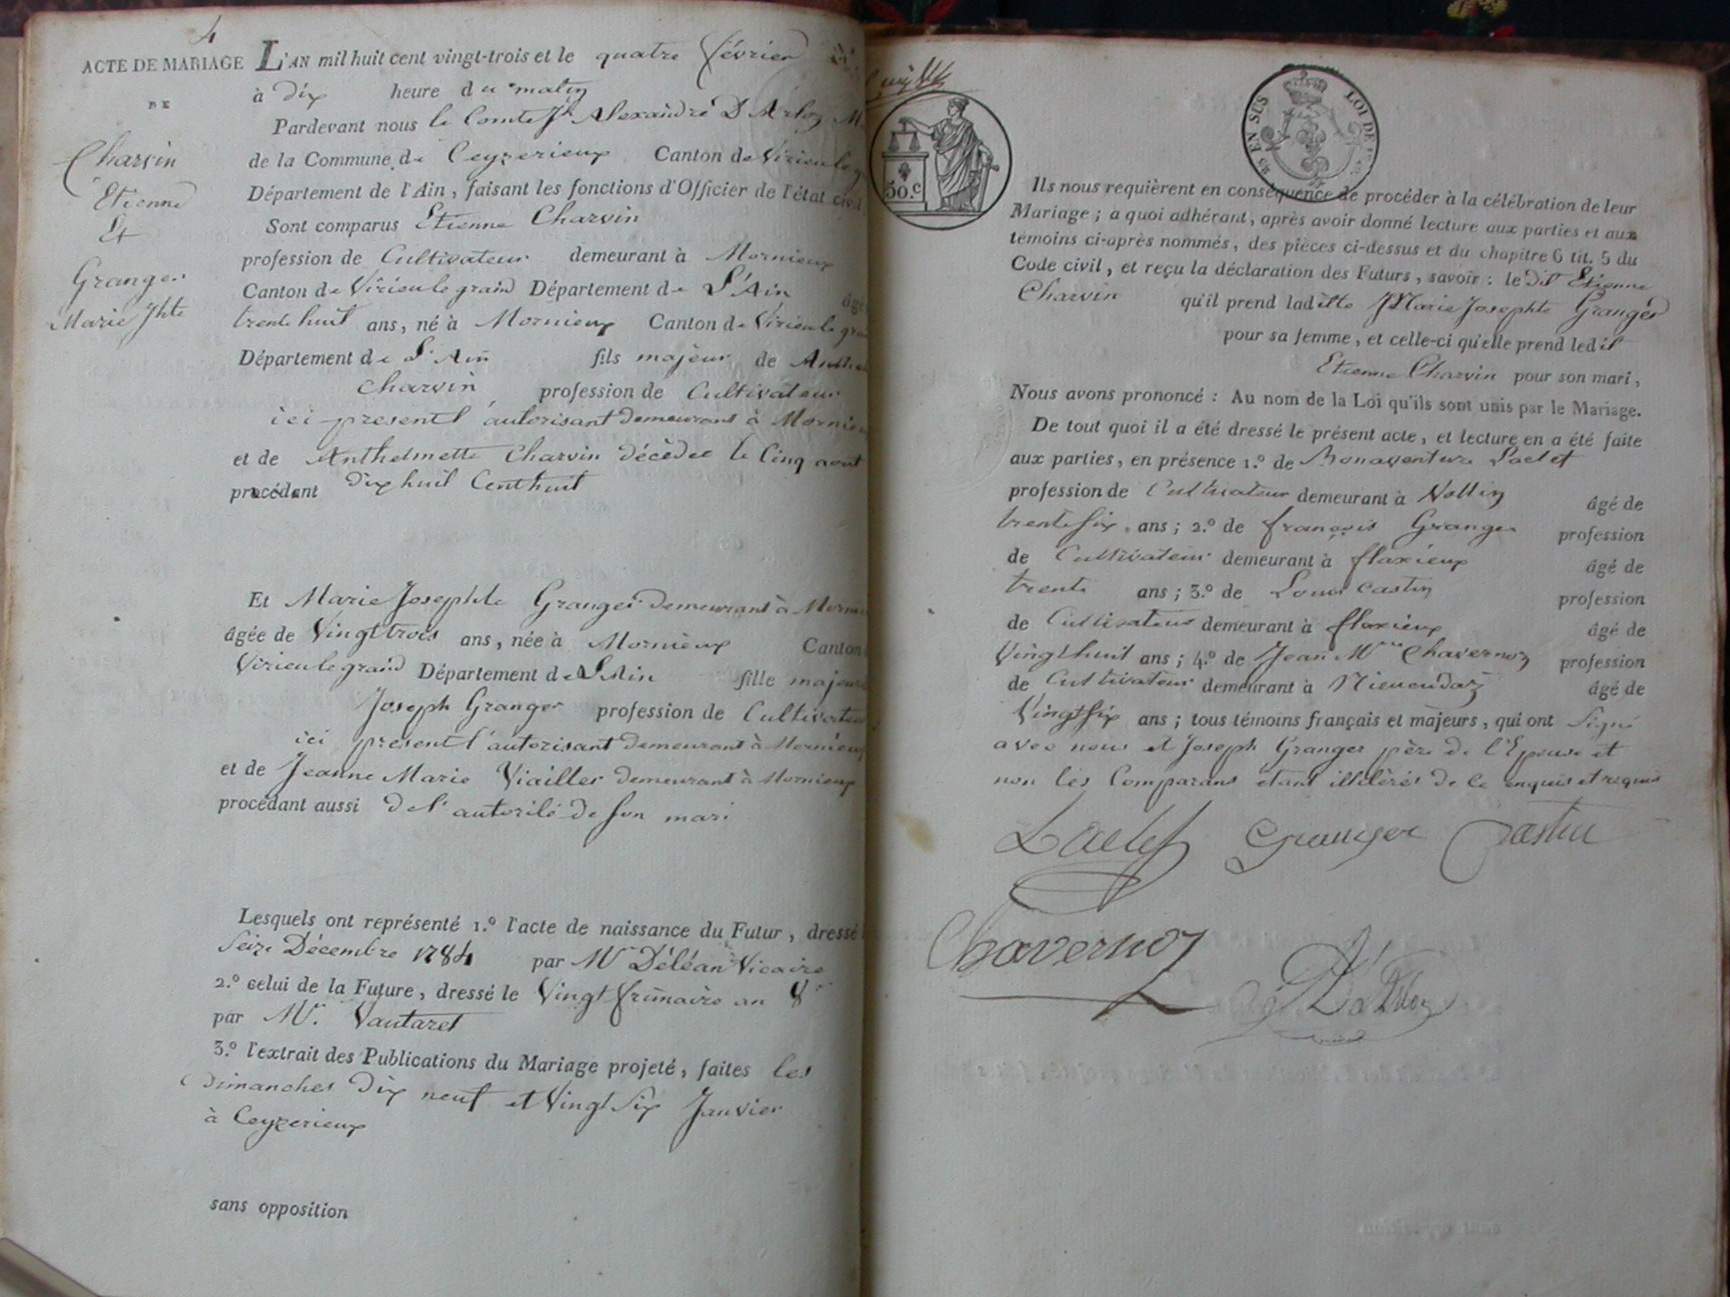 4
ACTE DE MARIAGE
DE
Charvin
Etienne
Et
Granger
Marie Jhte
L'AN mil huit cent vingt-trois et le quatre février
à dix heure du matin
Pardevant nous le Comte Jh Alexandre D'Arloz
de la Commune de Ceyzerieux Canton de Virieu le
Département de l'Ain, faisant les fonctions d'Officier de l'état civil
Sont comparus Etienne Charvin
profession de Cultivateur demeurant à Mornieux
Canton de Virieu le grand Département de L'Ain âgé
trente huit ans, né à Mornieux Canton de Virieu le
Département de L'Ain fils majeur de
Charvin profession de Cultivateur
ici present l'autorisant demeurant à
et de Anthelmette Charvin décèdée le Cinq aout
procédant dix huit Cent huit
Et Marie Josephte Granger demeurant à
âgée de Vingt trois ans, née à Mornieux Canton
Virieu le grand Département de L'Ain fille majeure
Joseph Granger profession de Cultivateur
ici present l'autorisant demeurant à Mornieux
et de Jeanne Marie Viailler demeurant à Mornieux
procédant aussi de l'autorité de son mari
Lesquels ont représenté 1.º l'acte de naissance du Futur, dressé
Seize Décembre 1784 par Mr Déléan Vicaire
2.º celui de la Future, dressé le Vingt frimaire an 8
par Mr. Vautaret
3.º l'extrait des Publications du Mariage projeté, faites les
Dimanches dix neuf et Vingt Six Janvier
à Ceyzerieux
sans opposition
50.c
EN SUS
LOI DE
Ils nous requièrent en conséquence de procéder à la célébration de leur
Mariage; à quoi adhérant, après avoir donné lecture aux parties et aux
témoins ci-après nommés, des pièces ci-dessus et du chapitre 6 tit. 5 du
Code civil, et reçu la déclaration des Futurs, savoir: le dit Etienne
Charvin qu'il prend ladite Marie Josephte Granger
pour sa femme, et celle-ci qu'elle prend ledit
Etienne Charvin pour son mari,
Nous avons prononcé: Au nom de la Loi qu'ils sont unis par le Mariage.
De tout quoi il a été dressé le présent acte, et lecture en a été faite
aux parties, en présence 1.º de Bonaventure Laclef
profession de Cultivateur demeurant à Vollin âgé de
trente six ans; 2.º de françois Granger profession
de Cultivateur demeurant à flaxieux âgé de
trente ans; 3.º de Louis Castin profession
de Cultivateur demeurant à flaxieux âgé de
Vingt huit ans; 4.º de Jean Chavernoz profession
de Cultivateur demeurant à âgé de
Vingt Six ans; tous témoins français et majeurs, qui ont Signé
avec nous et Joseph Granger père de l'Epouse et
non les Comparans etant illitérés de ce enquis et requis
Laclef Granger Castin
Chavernoz
D'Arloz